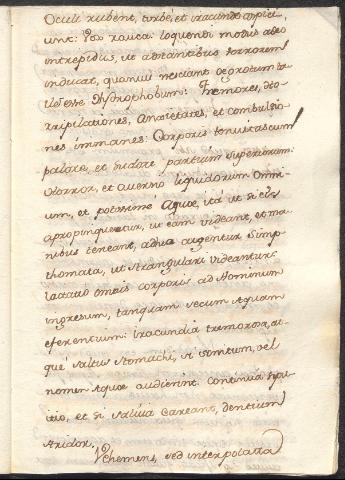 Oculi rubent, torbè, et iracundè aspici-
unt: Vox rauca: loquendi modus adeo
intrepidus, ut adstantibus terrorem
inducat, quamvis nesciant ægrotum ta-
lem esse Hydrophobum: Tremores, Ho-
rripilationes, Anxietates, et combulsio-
nes immanes: Corporis
palore, et sudore partium superiorum.
Horror, et aversio liquidorum omni-
um, et potissimè Aquæ, ità ut si eis
apropinquetur, ut eam videant, et ma-
nibus teneant, adeo augentur simp-
thomata, ut strangulari videantur.
Iactatio omnis corporis ad Hominum
ingresum, tanquam secum Aquam
eferentium: iracundia tremorosa, at-
què saltus stomachi, si sonitum, vel
nomen Aquæ audierint. Continua spu-
itio, et si saliva careant, dentium
stridor.
Vehemens, sed interpolata